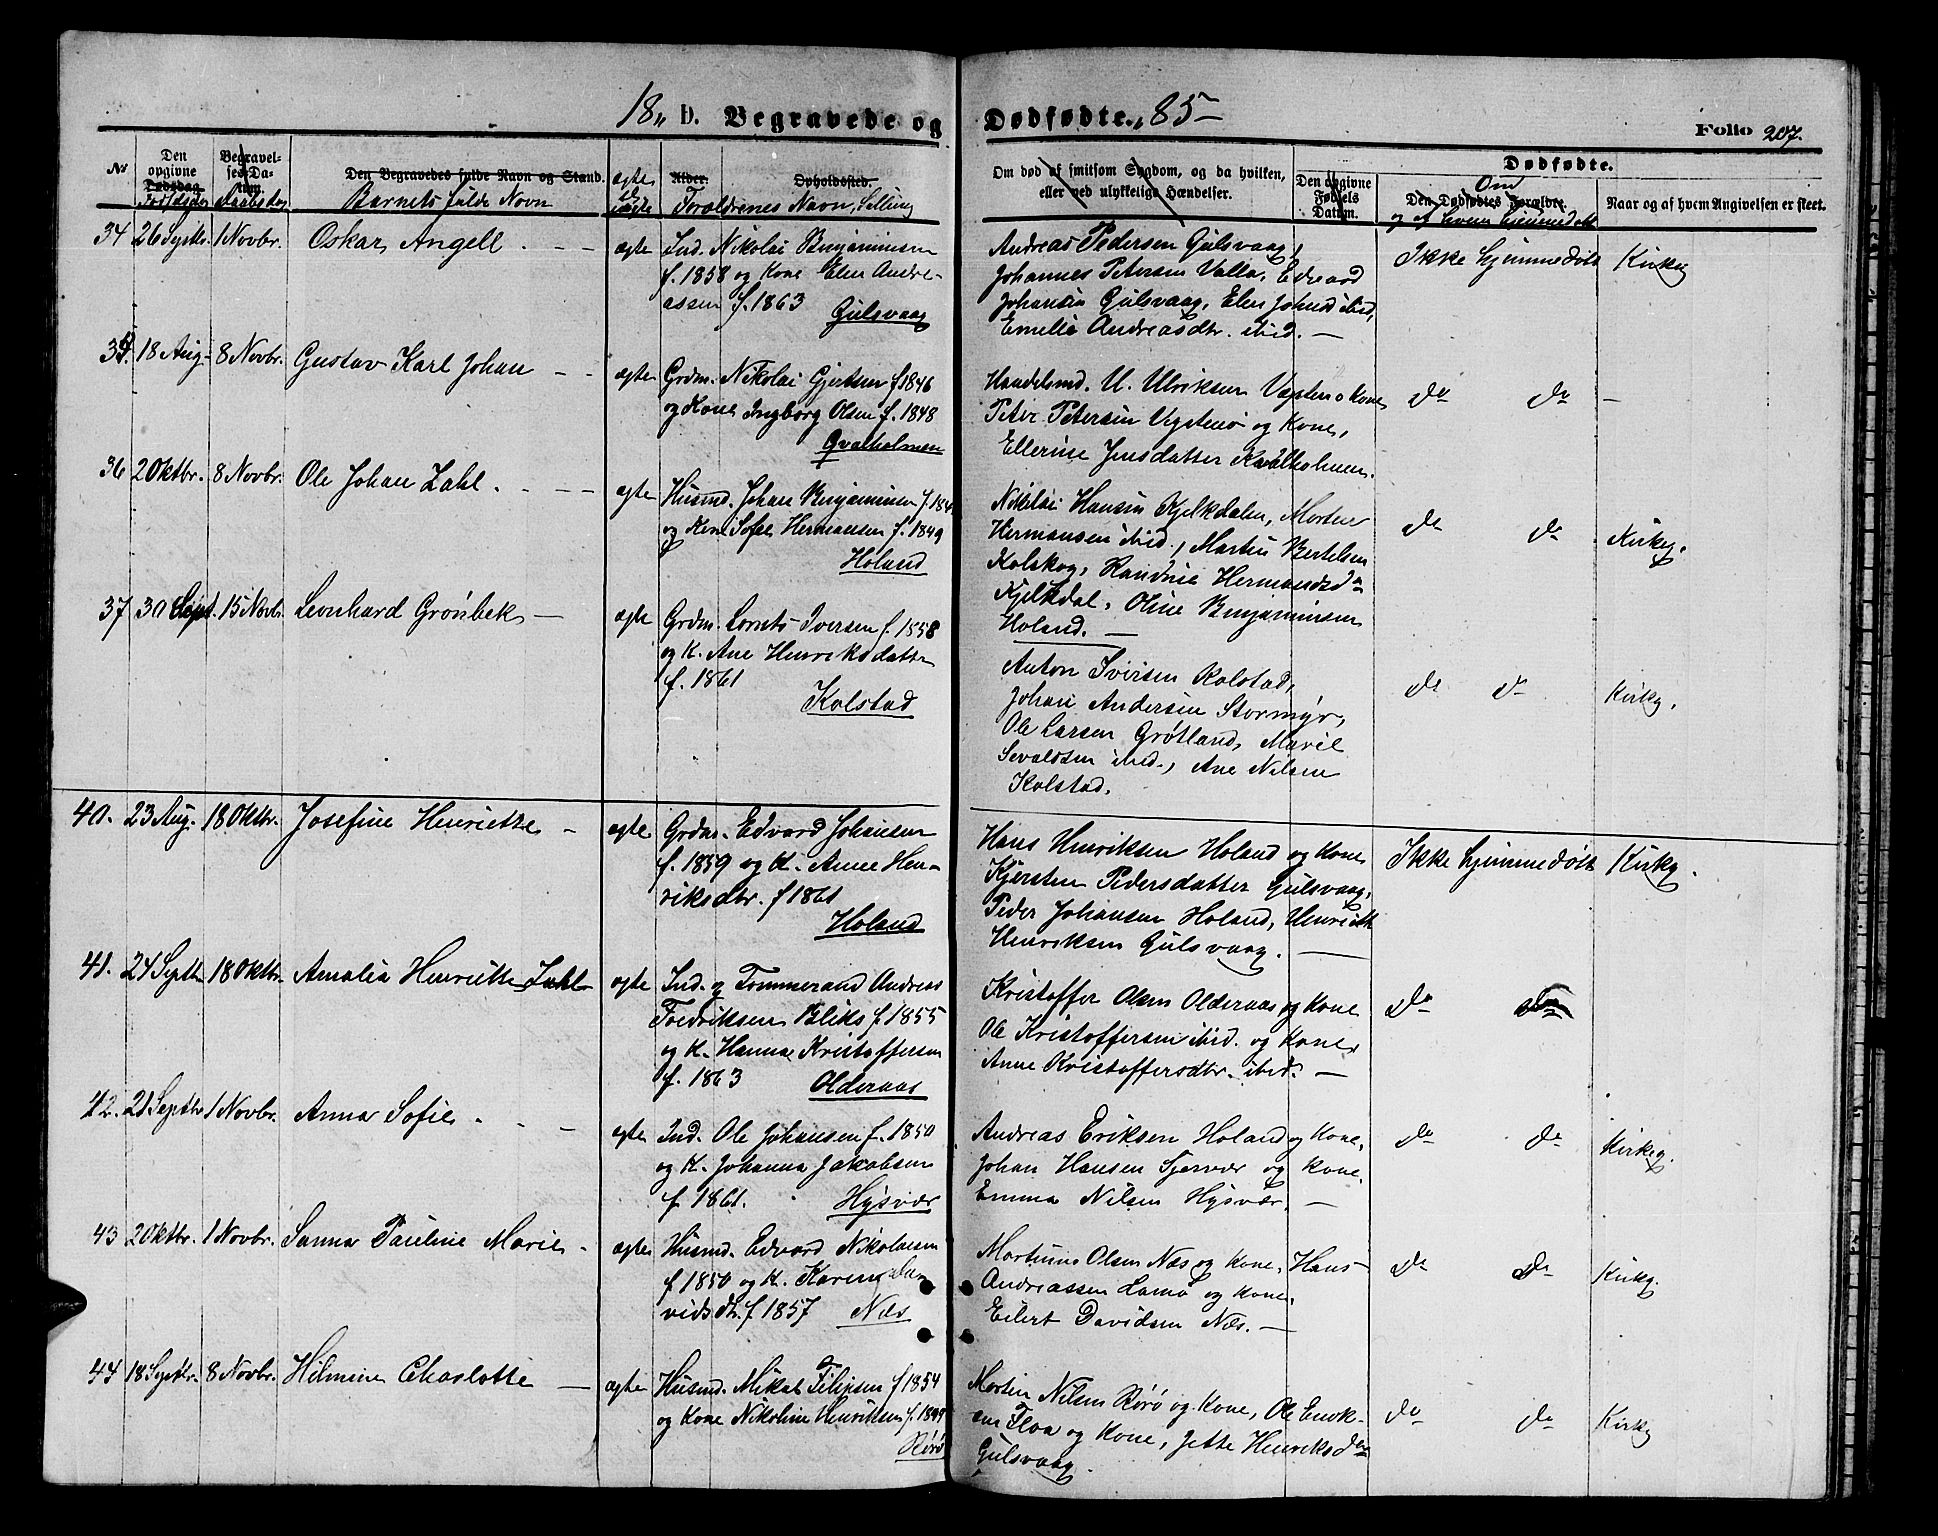 18 b. Begravede og Dødfødte. 85
Folio 207.
No
Den opgivne Dødsdag. Fødselsdag
Begravelses-Datum. Daabsdag
Den Begravedes fulde Navn og Stand.
Barnets fulde Navn
ægte el. uægte
Alder. Opholdssted.
Forældrenes Navn, Stilling
Om død af smitsom Sygdom, og da hvilken,
eller ved ulykkelige Hændelser.
Den opgivne Fødsels Datum.
Dødfødte.
Den Dødfødtes Forældre.
Om og af hvem hjemmedøbt
Naar og af hvem Angivelsen er skeet.
34 26 Septbr. 1 Novbr. Oskar Angell ægte
Ind. Nikolai Benjaminsen
f. 1858 og Kone Elen Andre-
assen f. 1863
Gulsvaag
Andreas Pedersen Gulsvaag,
Johannes Petersen Valla, Edvard
Johansen Gulsvaag, Elen Johnsd ibid,
Emelie Andreasdtr. ibid. —
Ikke hjemmedøbt Kirkeg
35 18 Aug. 8 Novbr. Gustav Karl Johan ægte
Grdm. Nikolai Gjertsen f 1846
og Kone Ingborg Olsen f. 1848
Qvalholmen
Handelsmd. U. Ulriksen Vegsten o Kone
Peter Petersen Vegstenø og Kone,
Ellerine Jensdatter Kvalholmen.
do do —
36 2 Oktbr. 8 Novbr. Ole Johan Zahl ægte
Husmd. Johan Benjaminsen f. 184
og Kone Sofie Hermansen f. 1849
Holand
Nikolai Hansen Kjelkdalen, Morten
Hermansen ibid., Martin Bertelsen
Kolskog, Randine Hermansd
Kjelkdal, Oline Benjaminsen
Holand. —
do do Kirkeg.
37 30 Sept. 15 Novbr. Leonhard Grønbek — ægte
Grdm. Lornts Iversen f. 1858
og K. Ane Henriksdatter
f. 1861
Kolstad
Anton Iversen Kolstad,
Johan Andersen Stormyr,
Ole Larsen Grøtland, Marie
Sevaldsen ibid., Ane Nilsen
Kolstad.
do do Kirkg.
40. 23 Aug. 18 Oktbr. Josefine Henriette — ægte
Grdm. Edvard Johansen
f. 1859 og K. Anne Hen-
riksdtr. f 1861
Holand
Hans Henriksen Holand og Kone
Kjersten Pedersdatter Gulsvaag,
Peder Johansen Holand, Henriette
Henriksen Gulsvaag. —
Ikke hjemmedøbt Kirkg.
41. 24 Septbr 18 Oktbr. Amalia Henriette Zahl ægte
Ind. og Tømmermd Andreas
Fredriksen Bliks f. 1855
og K. Hanna Kristoffersen
f. 1863 Olderaas
Kristoffer Olsen Olderaas og Kone
Ole Kristoffersen ibid. og Kone
Anne Kristoffersdtr. ibid. —
do do
42. 21 Septbr 1 Novbr. Anna Sofie ægte
Ind. Ole Johansen f. 1850
og K. Johanna Jakobsen
f. 1861. Hysvær
Andreas Eriksen Holand og Kone,
Johan Hansen Tjervær og Kone.
Emma Nilsen Hysvær. —
do do Kirkeg.
43 2 Oktbr. 1 Novbr. Sanna Pauline Marie ægte
Husmd. Edvard Nikolaisen
f 1850 og K. Karen Da-
vidsdtr. f 1857 Næs
Martinus Olsen Næs og Kone, Hans
Andreassen Lamø og Kone.
Eilert Davidsen Næs. —
do do Kirkg.
44 18 Septbr. 8 Novbr. Hilmine Charlotte — ægte
Husmd. Mikal Filipsen f 1854
og Kone Nikoline Henriksen f. 1849
Rørø
Martin Nilsen Rørø og Kone, Ole Enok-
sen Floa og Kone, Jette Henriksdtr
Gulsvaag.
do do Kirkg